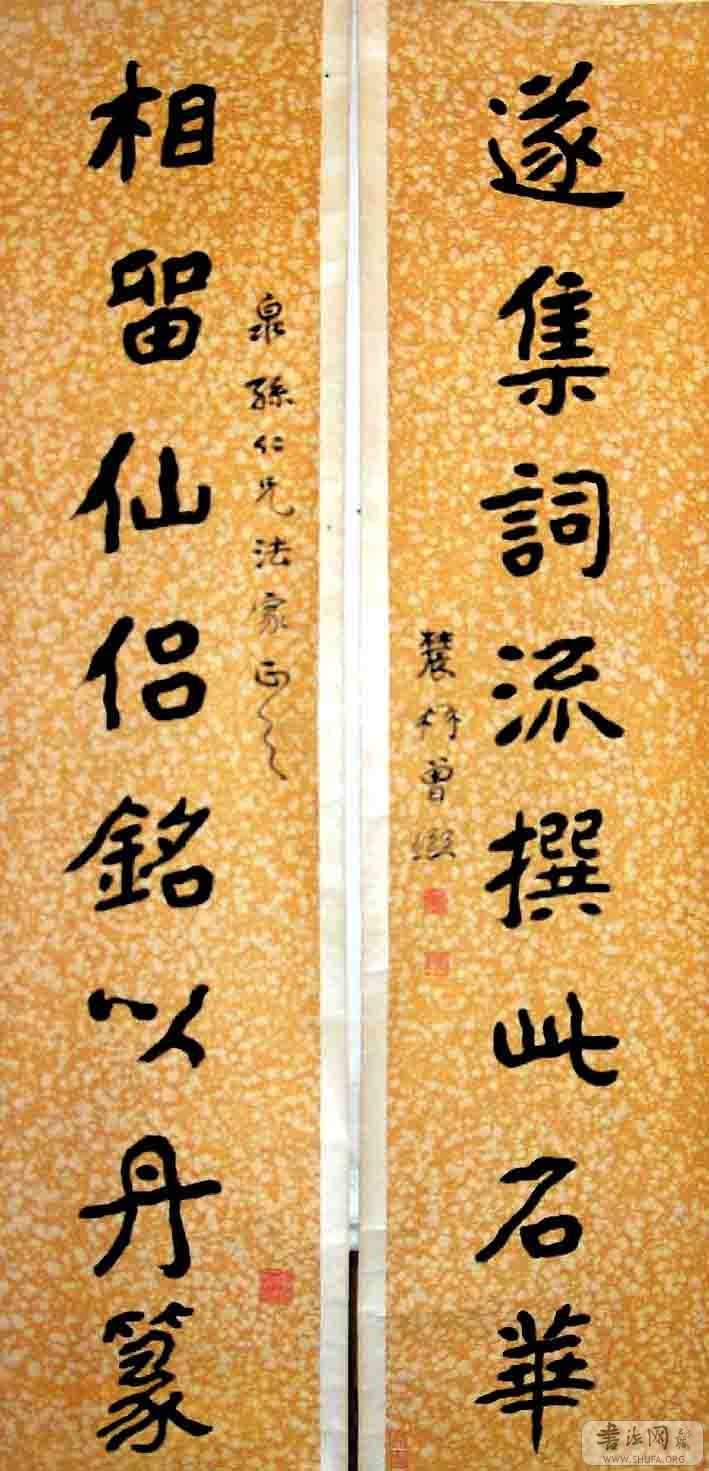 遂集詞流撰此石華
農髯曾熙
泉孫仁兄法家正之
相留仙侶銘以丹篆
書法网
WWW.SHUFA.ORG